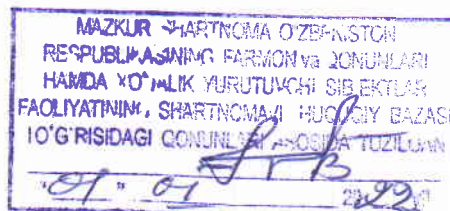 MAZKUR SHARTNOMA O'ZBEKISTON
RESPUBLIKASINING FARMON va QONUNLARI
HAMDA XO'JALIK YURUTUVCHI SUB'EKTLAR
FAOLIYATINING SHARTNOMAVI HUQUQIY BAZASI
TO'G'RISIDAGI QONUNLARI ASOSIDA TUZILGAN
"01" 01 2022